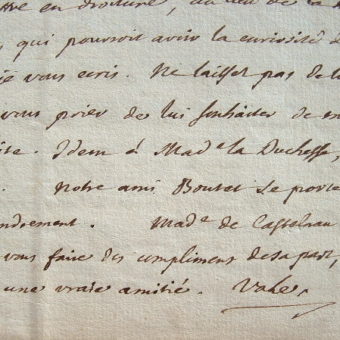 en droiture, au lieu de la
qui pourroit avoir la curiosité d
je vous ecris. Ne laissez pas de l
vous prier de lui souhaiter de
Idem à Made la Duchesse,
. Notre ami Boutet se porte
ndrement. Made de Castelnau
vous faire des compliments de sa part,
une vraie amitié. Vale.